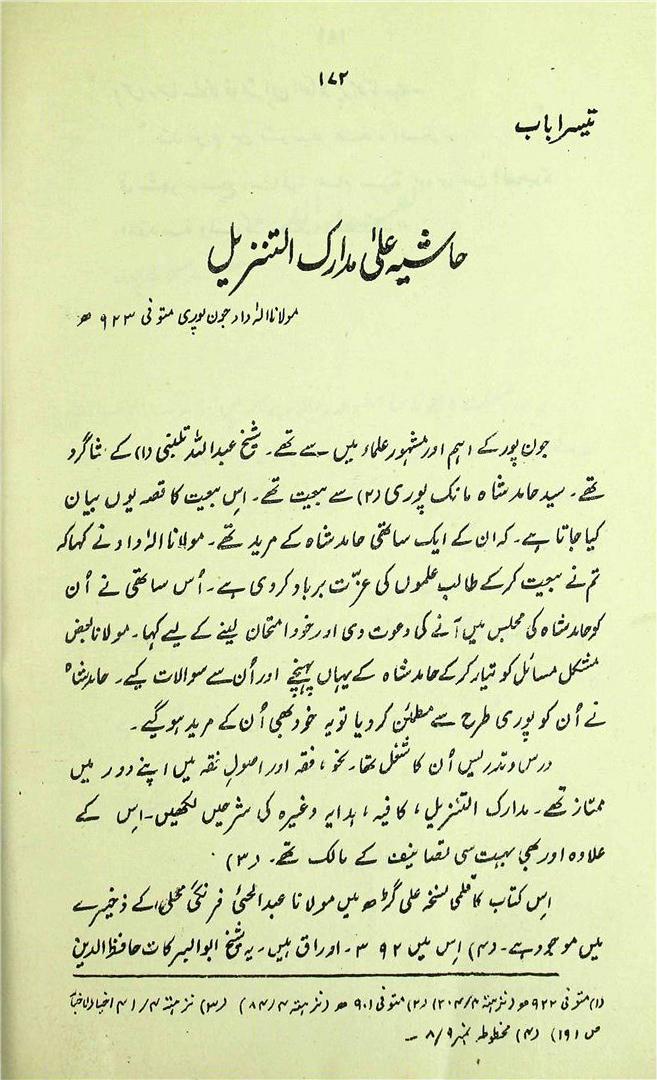 ۱۷۲
تیسرا باب
حاشیہ علیٰ مدارک التنزیل
مولانا الہٰ داد جون پوری متوفی ۹۲۳ ھ
جون پور کے اہم اور مشہور علماء میں سے تھے۔ شیخ عبداللہ تلبنی (۱) کے شاگرد
تھے۔ سید حامد شاہ مانک پوری (۲) سے بیعت تھے۔ اس بیعت کا قصہ یوں بیان
کیا جاتا ہے۔ کہ ان کے ایک ساتھی حامد شاہ کے مرید تھے۔ مولانا الہٰ داد نے کہا کہ
تم نے بیعت کر کے طالب علموں کی عزّت برباد کردی ہے۔ اُس ساتھی نے اُن
کو حامد شاہ کی مجلس میں آنے کی دعوت دی اور خود امتحان لینے کے لیے کہا۔ مولانا بعض
مشکل مسائل کو تیار کرکے حامد شاہ کے یہاں پہنچے اور اُن سے سوالات کیے۔ حامد شاہ
نے اُن کو پوری طرح سے مطمئن کردیا تو یہ خود بھی اُن کے مرید ہوگیے۔
درس و تدریس اُن کا شغل تھا۔ نحو، فقہ اور اصولِ فقہ میں اپنے دور میں
ممتاز تھے۔ مدارک التنزیل، کافیہ، ہدایہ وغیرہ کی شرحیں لکھیں۔ اس کے
علاوہ اور بھی بہت سی تصانیف کے مالک تھے۔ (۳)
اس کتاب کا قلمی نسخہ علی گڑھ میں مولانا عبدالحئی فرنگی محلی کے ذخیرے
میں موجود ہے۔ (۴) اس میں ۳۹۲ اوراق ہیں۔ یہ شیخ ابوالبرکات حافظ الدین
(۱) متوفی ۹۲۲ ھ (نزہتہ ۴/۲۰۴) (۲) متوفی ۹۰۱ ھ (نزہتہ ۴/۸۴) (۳) نزہتہ ۴/۴۱ اخبار الاخیار
ص ۱۹۱) (۴) مخطوطہ نمبر ۸/۹ ۔